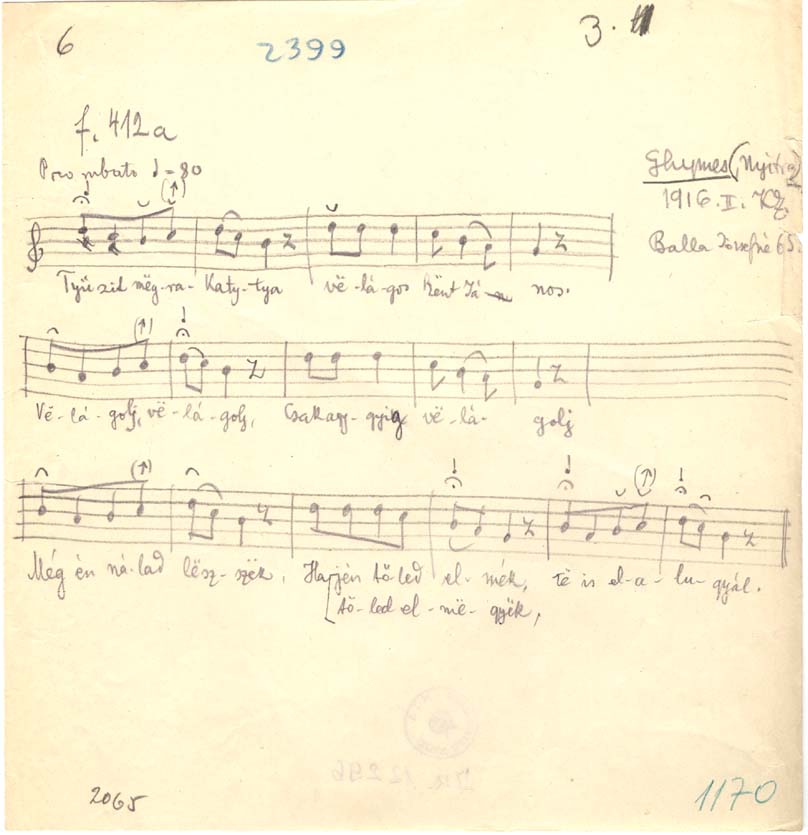 6
2399
3.
f. 412a
Ghymes (Nyitra)
1916. II. KZ
Balla Józsefné 65.
Tyüzit mëg-ra- Katy-tya vë-lá-gos Kënt Já- nos.
Vë-lá-golj, vë-lá-golj, Csakagy-gyig vë-lá- golj
Még én ná-lad lësz-szëk, Ha jén tő-led el-mék, të is el-a-lu-gyál.
tő-led el-më-gyëk,
2065
1170